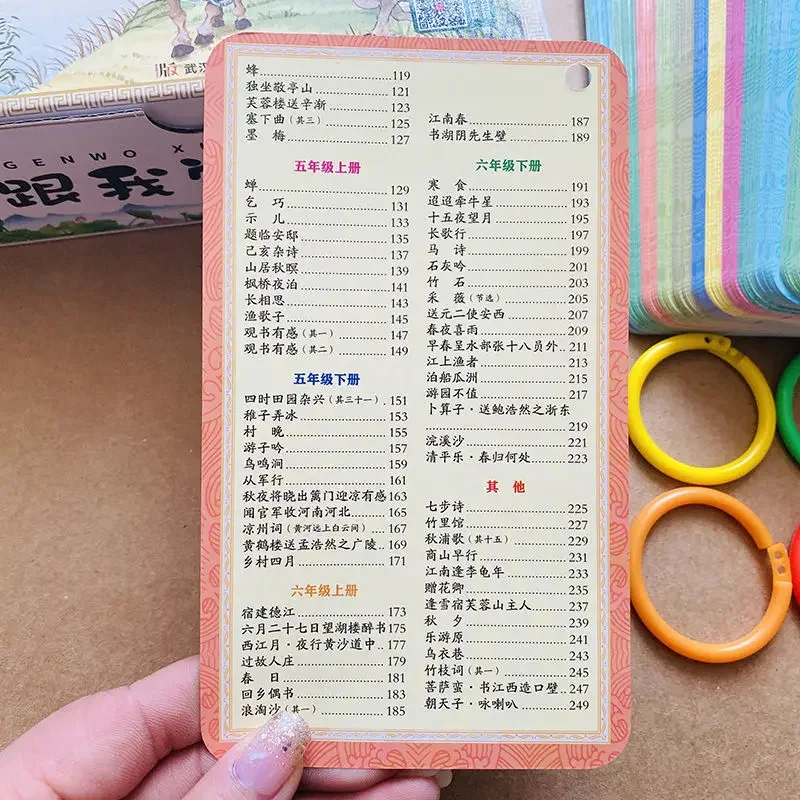 版 武汉
GENWO X
跟我
蜂 119
独坐敬亭山 121
芙蓉楼送辛渐 123
塞下曲(其三) 125
墨 梅 127
五年级上册
蝉 129
乞 巧 131
示 儿 133
题临安邸 135
己亥杂诗 137
山居秋暝 139
枫桥夜泊 141
长相思 143
渔歌子 145
观书有感(其一) 147
观书有感(其二) 149
五年级下册
四时田园杂兴(其三十一) 151
稚子弄冰 153
村 晚 155
游子吟 157
鸟鸣涧 159
从军行 161
秋夜将晓出篱门迎凉有感 163
闻官军收河南河北 165
凉州词(黄河远上白云间) 167
黄鹤楼送孟浩然之广陵 169
乡村四月 171
六年级上册
宿建德江 173
六月二十七日望湖楼醉书 175
西江月·夜行黄沙道中 177
过故人庄 179
春 日 181
回乡偶书 183
浪淘沙(其一) 185
江南春 187
书湖阴先生壁 189
六年级下册
寒 食 191
迢迢牵牛星 193
十五夜望月 195
长歌行 197
马 诗 199
石灰吟 201
竹 石 203
采 薇(节选) 205
送元二使安西 207
春夜喜雨 209
早春呈水部张十八员外 211
江上渔者 213
泊船瓜洲 215
游园不值 217
卜算子·送鲍浩然之浙东
219
浣溪沙 221
清平乐·春归何处 223
其 他
七步诗 225
竹里馆 227
秋浦歌(其十五) 229
商山早行 231
江南逢李龟年 233
赠花卿 235
逢雪宿芙蓉山主人 237
秋 夕 239
乐游原 241
乌衣巷 243
竹枝词(其一) 245
菩萨蛮·书江西造口壁 247
朝天子·咏喇叭 249